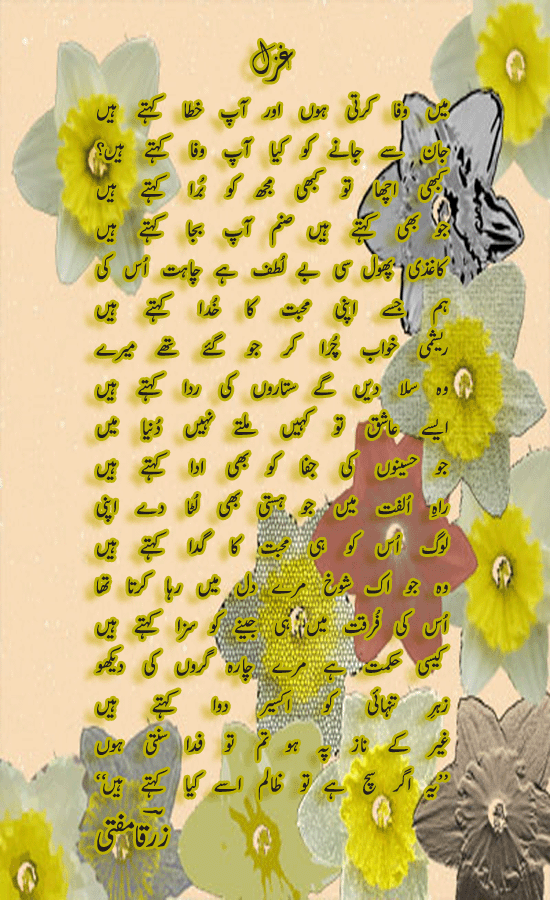 غزل
میں وفا کرتی ہوں اور آپ خطا کہتے ہیں
جان سے جانے کو کیا آپ وفا کہتے ہیں؟
کبھی اچھا تو کبھی مجھ کو بُرا کہتے ہیں
جو بھی کہتے ہیں صنم آپ بجا کہتے ہیں
کاغذی پھول سی بے لُطف ہے چاہت اُس کی
ہم جسے اپنی محبت کا خُدا کہتے ہیں
ریشمی خواب چُرا کر جو گئے تھے میرے
وہ سلا دیں گے ستاروں کی ردا کہتے ہیں
ایسے عاشق تو کہیں ملتے نہیں دُنیا میں
جو حسینوں کی جفا کو بھی ادا کہتے ہیں
راہِ اُلفت میں جو ہستی بھی لُٹا دے اپنی
لوگ اُس کو ہی محبت کا گدا کہتے ہیں
وہ جو اک شوخ مرے دل میں رہا کرتا تھا
اُس کی فُرقت میں ہی جینے کو سزا کہتے ہیں
کیسی حکمت ہے مرے چارہ گروں کی دیکھو
زہرِ تنہائی کو اکسیر دوا کہتے ہیں
غیر کے ناز پہ ہو تم تو فدا سنتی ہوں
”یہ اگر سچ ہے تو ظالم اسے کیا کہتے ہیں“
زرقا مفتی